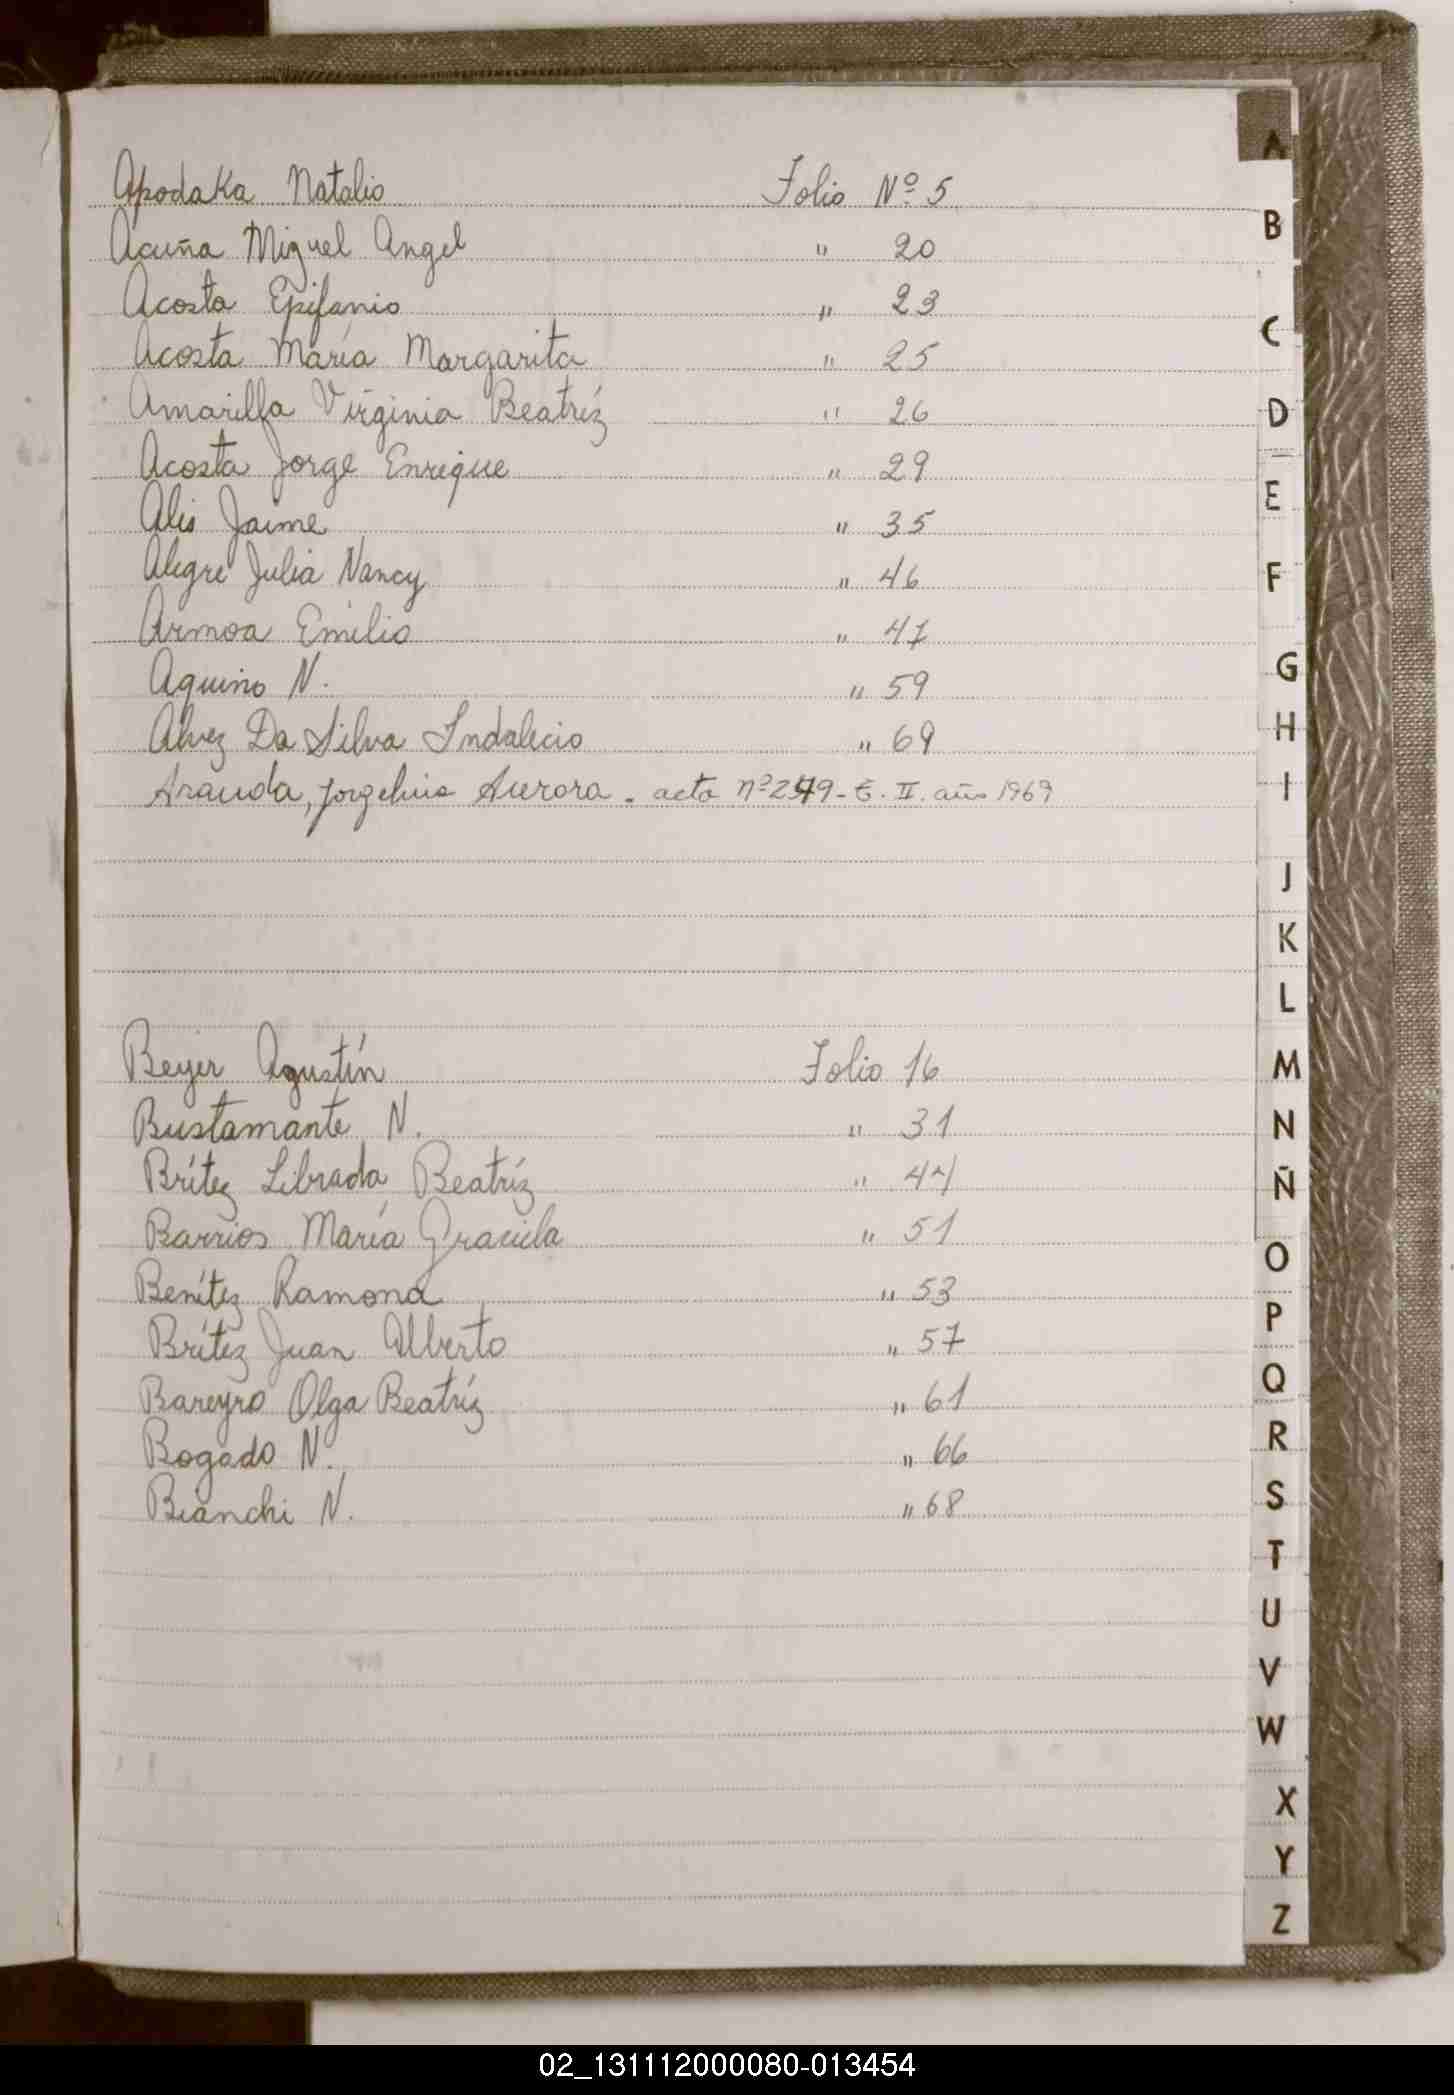 Apodaka Natalio Folio Nº 5
Acuña Miguel Angel " 20
Acosta Epifanio " 23
Acosta María Margarita " 25
Amarilla Virginia Beatríz " 26
Acosta Jorge Enrique " 29
Alis Jaime " 35
Alegre Julia Nancy " 46
Armoa Emilio " 47
Aquino N. " 59
Alvez Da Silva Indalecio " 69
Aranda, Jorgelina Aurora. acta nº 2349 - t. II. año 1969
Beyer Agustín Folio 16
Bustamante N. " 31
Brítez Librada Beatríz " 44
Barrios María Graciela " 51
Benítez Ramona " 53
Brítez Juan Alberto " 57
Bareyro Olga Beatríz " 61
Bogado N. " 66
Bianchi N. " 68
A
B
C
D
E
F
G
H
I
J
K
L
M
N
Ñ
O
P
Q
R
S
T
U
V
W
X
Y
Z
02_131112000080-013454